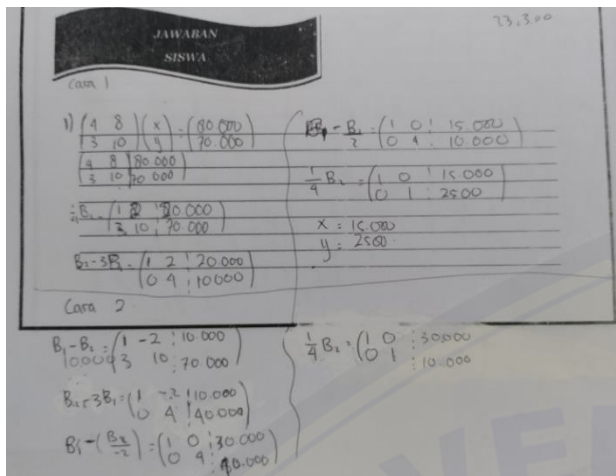 23.300
JAWABAN
SISWA
Cara 1
1) (4 8 / 3 10) (x / y) = (80.000 / 70.000)
(4 8 | 80.000 / 3 10 | 70 000)
B₁ = (1 2 | 20.000 / 3 10 | 70.000)
B₂-3B₁ = (1 2 | 20.000 / 0 4 | 10000)
- B₂/2 = (1 0 | 15.000 / 0 4 | 10.000)
1/4 B₂ = (1 0 | 15.000 / 0 1 | 2500)
x = 15.000
y = 2500
Cara 2
B₁-B₂ = (1 -2 | 10.000 / 3 10 | 70.000)
B₂-3B₁ = (1 -2 | 10.000 / 0 4 | 40.000)
B₁-(B₂/-2) = (1 0 | 30.000 / 0 4 | 40.000)
1/4 B₂ = (1 0 | 30.000 / 0 1 | 10.000)